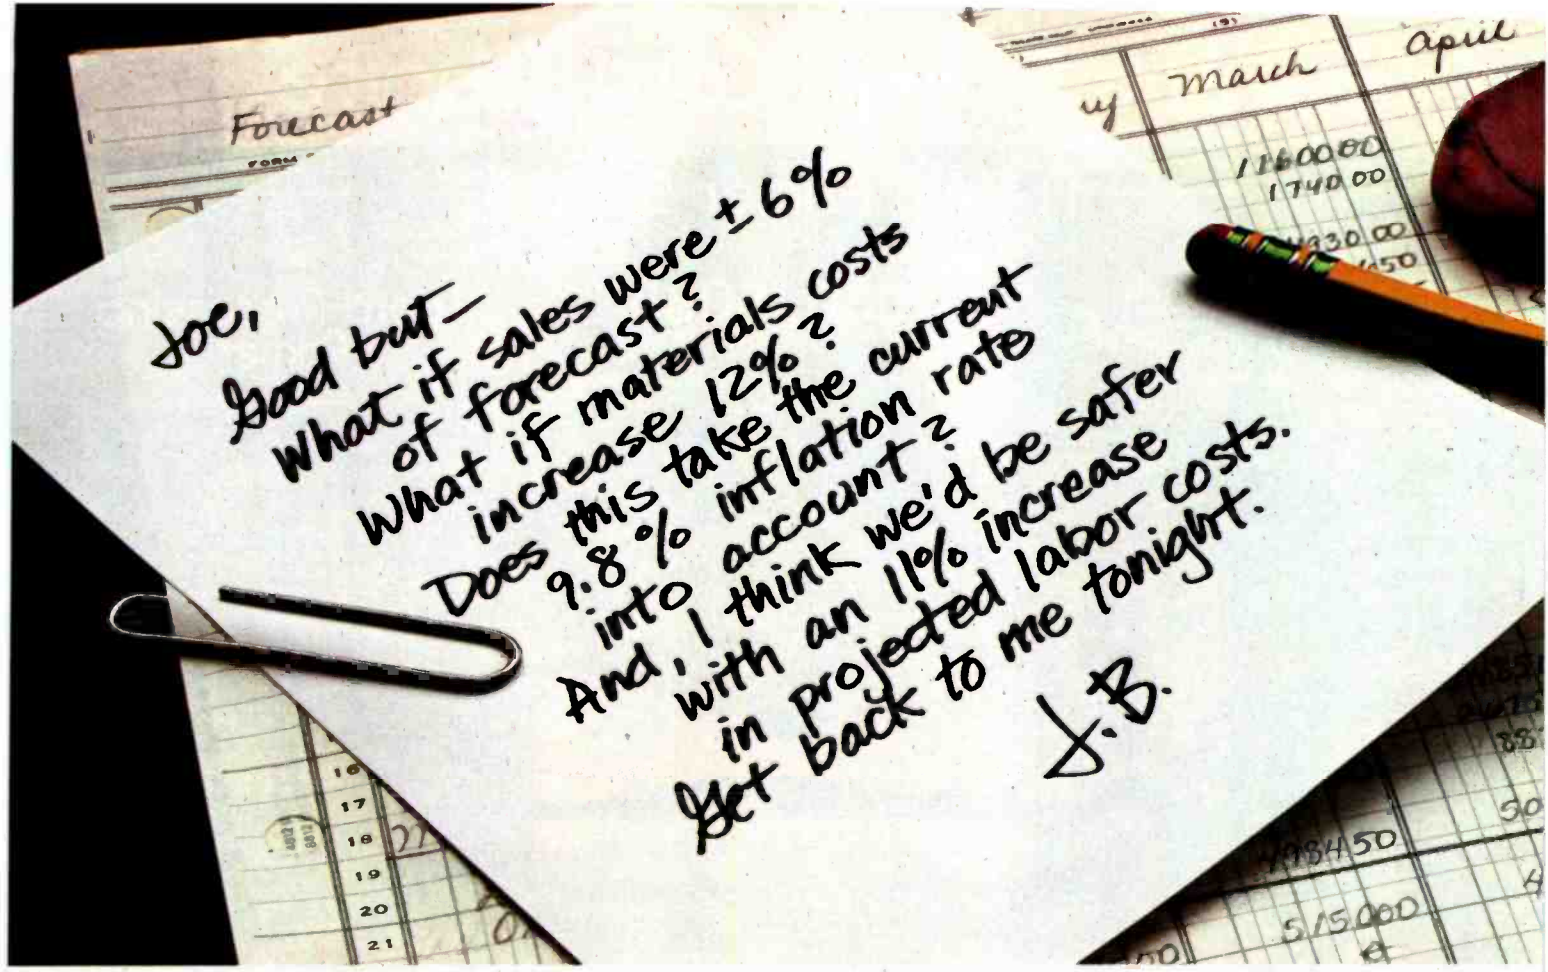 Forecast
march
april
1740.00
Joe,
Good but—
What if sales were ± 6%
of forecast?
What if materials costs
increase 12%?
Does this take the current
9.8% inflation rate
into account?
And, I think we'd be safer
with an 11% increase
in projected labor costs.
Get back to me tonight.
J.B.
16
17
18
19
20
21
515000